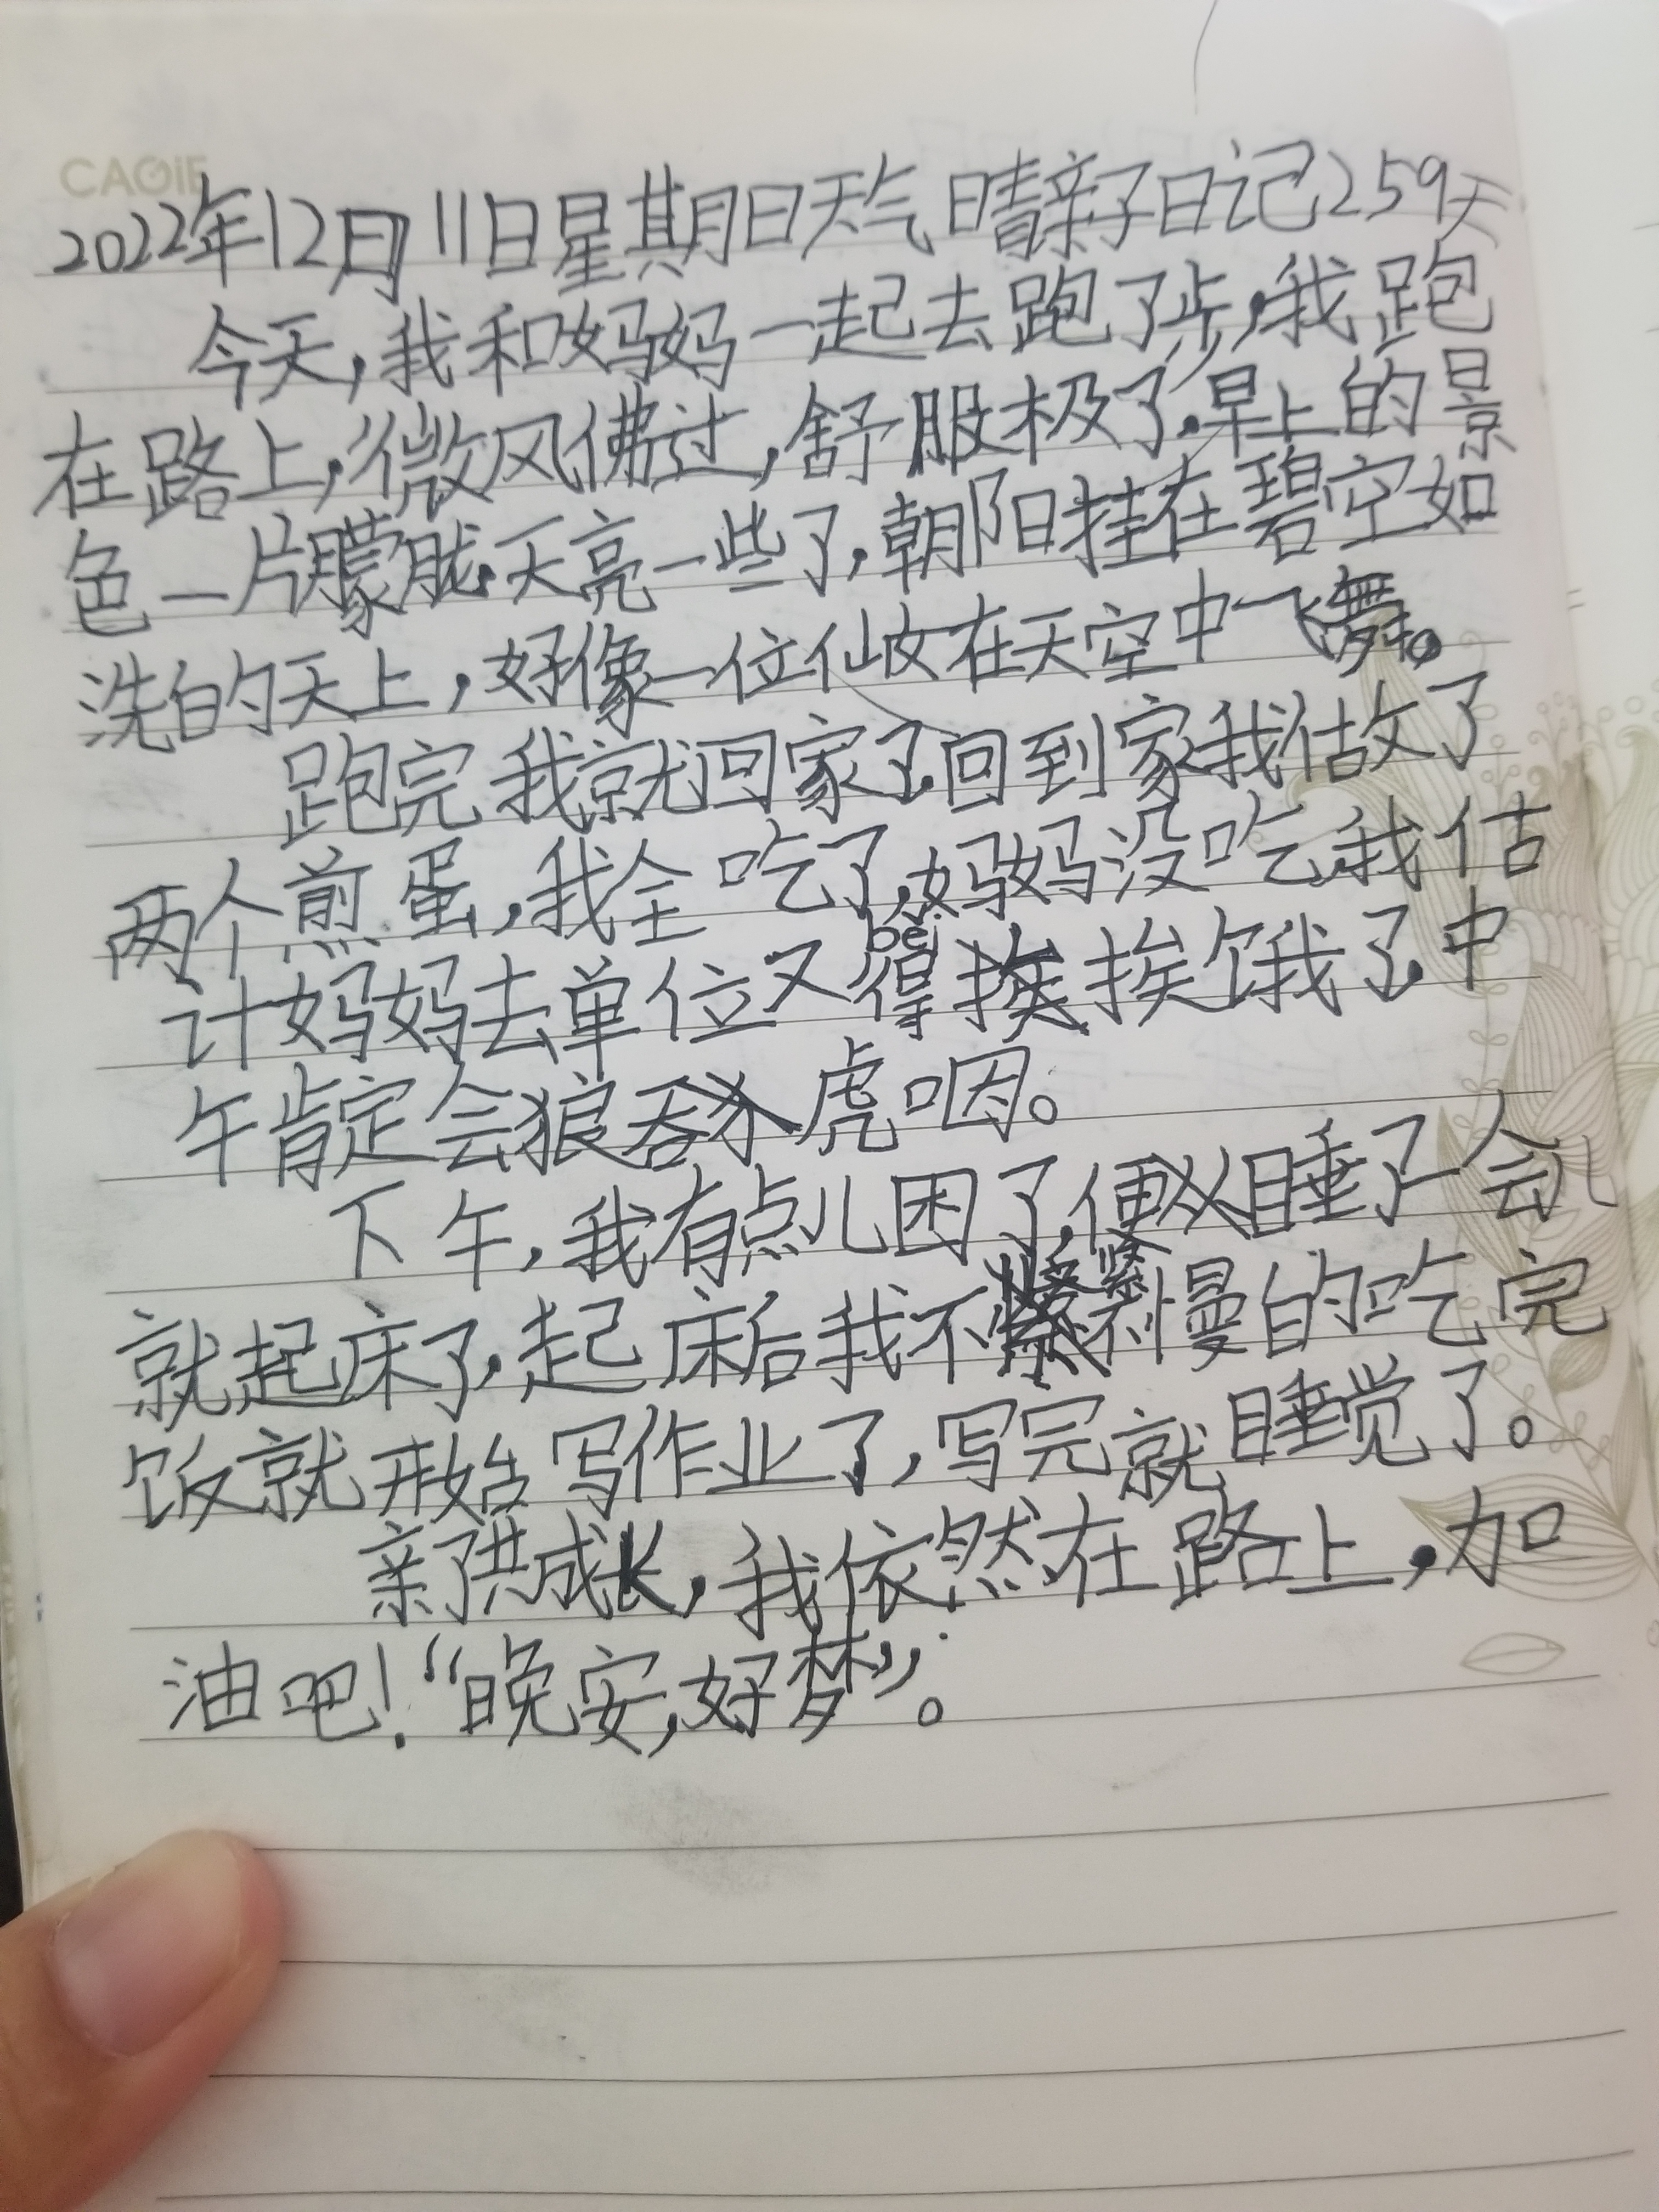 CAGIE
2022年12月11日星期日天气晴亲子日记259天
今天,我和妈妈一起去跑了步,我跑
在路上,微风佛过,舒服极了.早上的景
色一片朦胧.天亮一些了,朝阳挂在碧空如
洗的天上,好像一位仙女在天空中飞舞。
跑完我就回家了.回到家我做了
两个煎蛋,我全吃了,妈妈没吃我估
计妈妈去单位又得挨饿了.中
bei
午肯定会狼吞虎咽。
下午,我有点儿困了,便睡了一会儿
就起床了,起床后我不紧不慢的吃完
饭就开始写作业了,写完就睡觉了。
亲子共成长,我依然在路上,加
油吧!“晚安,好梦”。